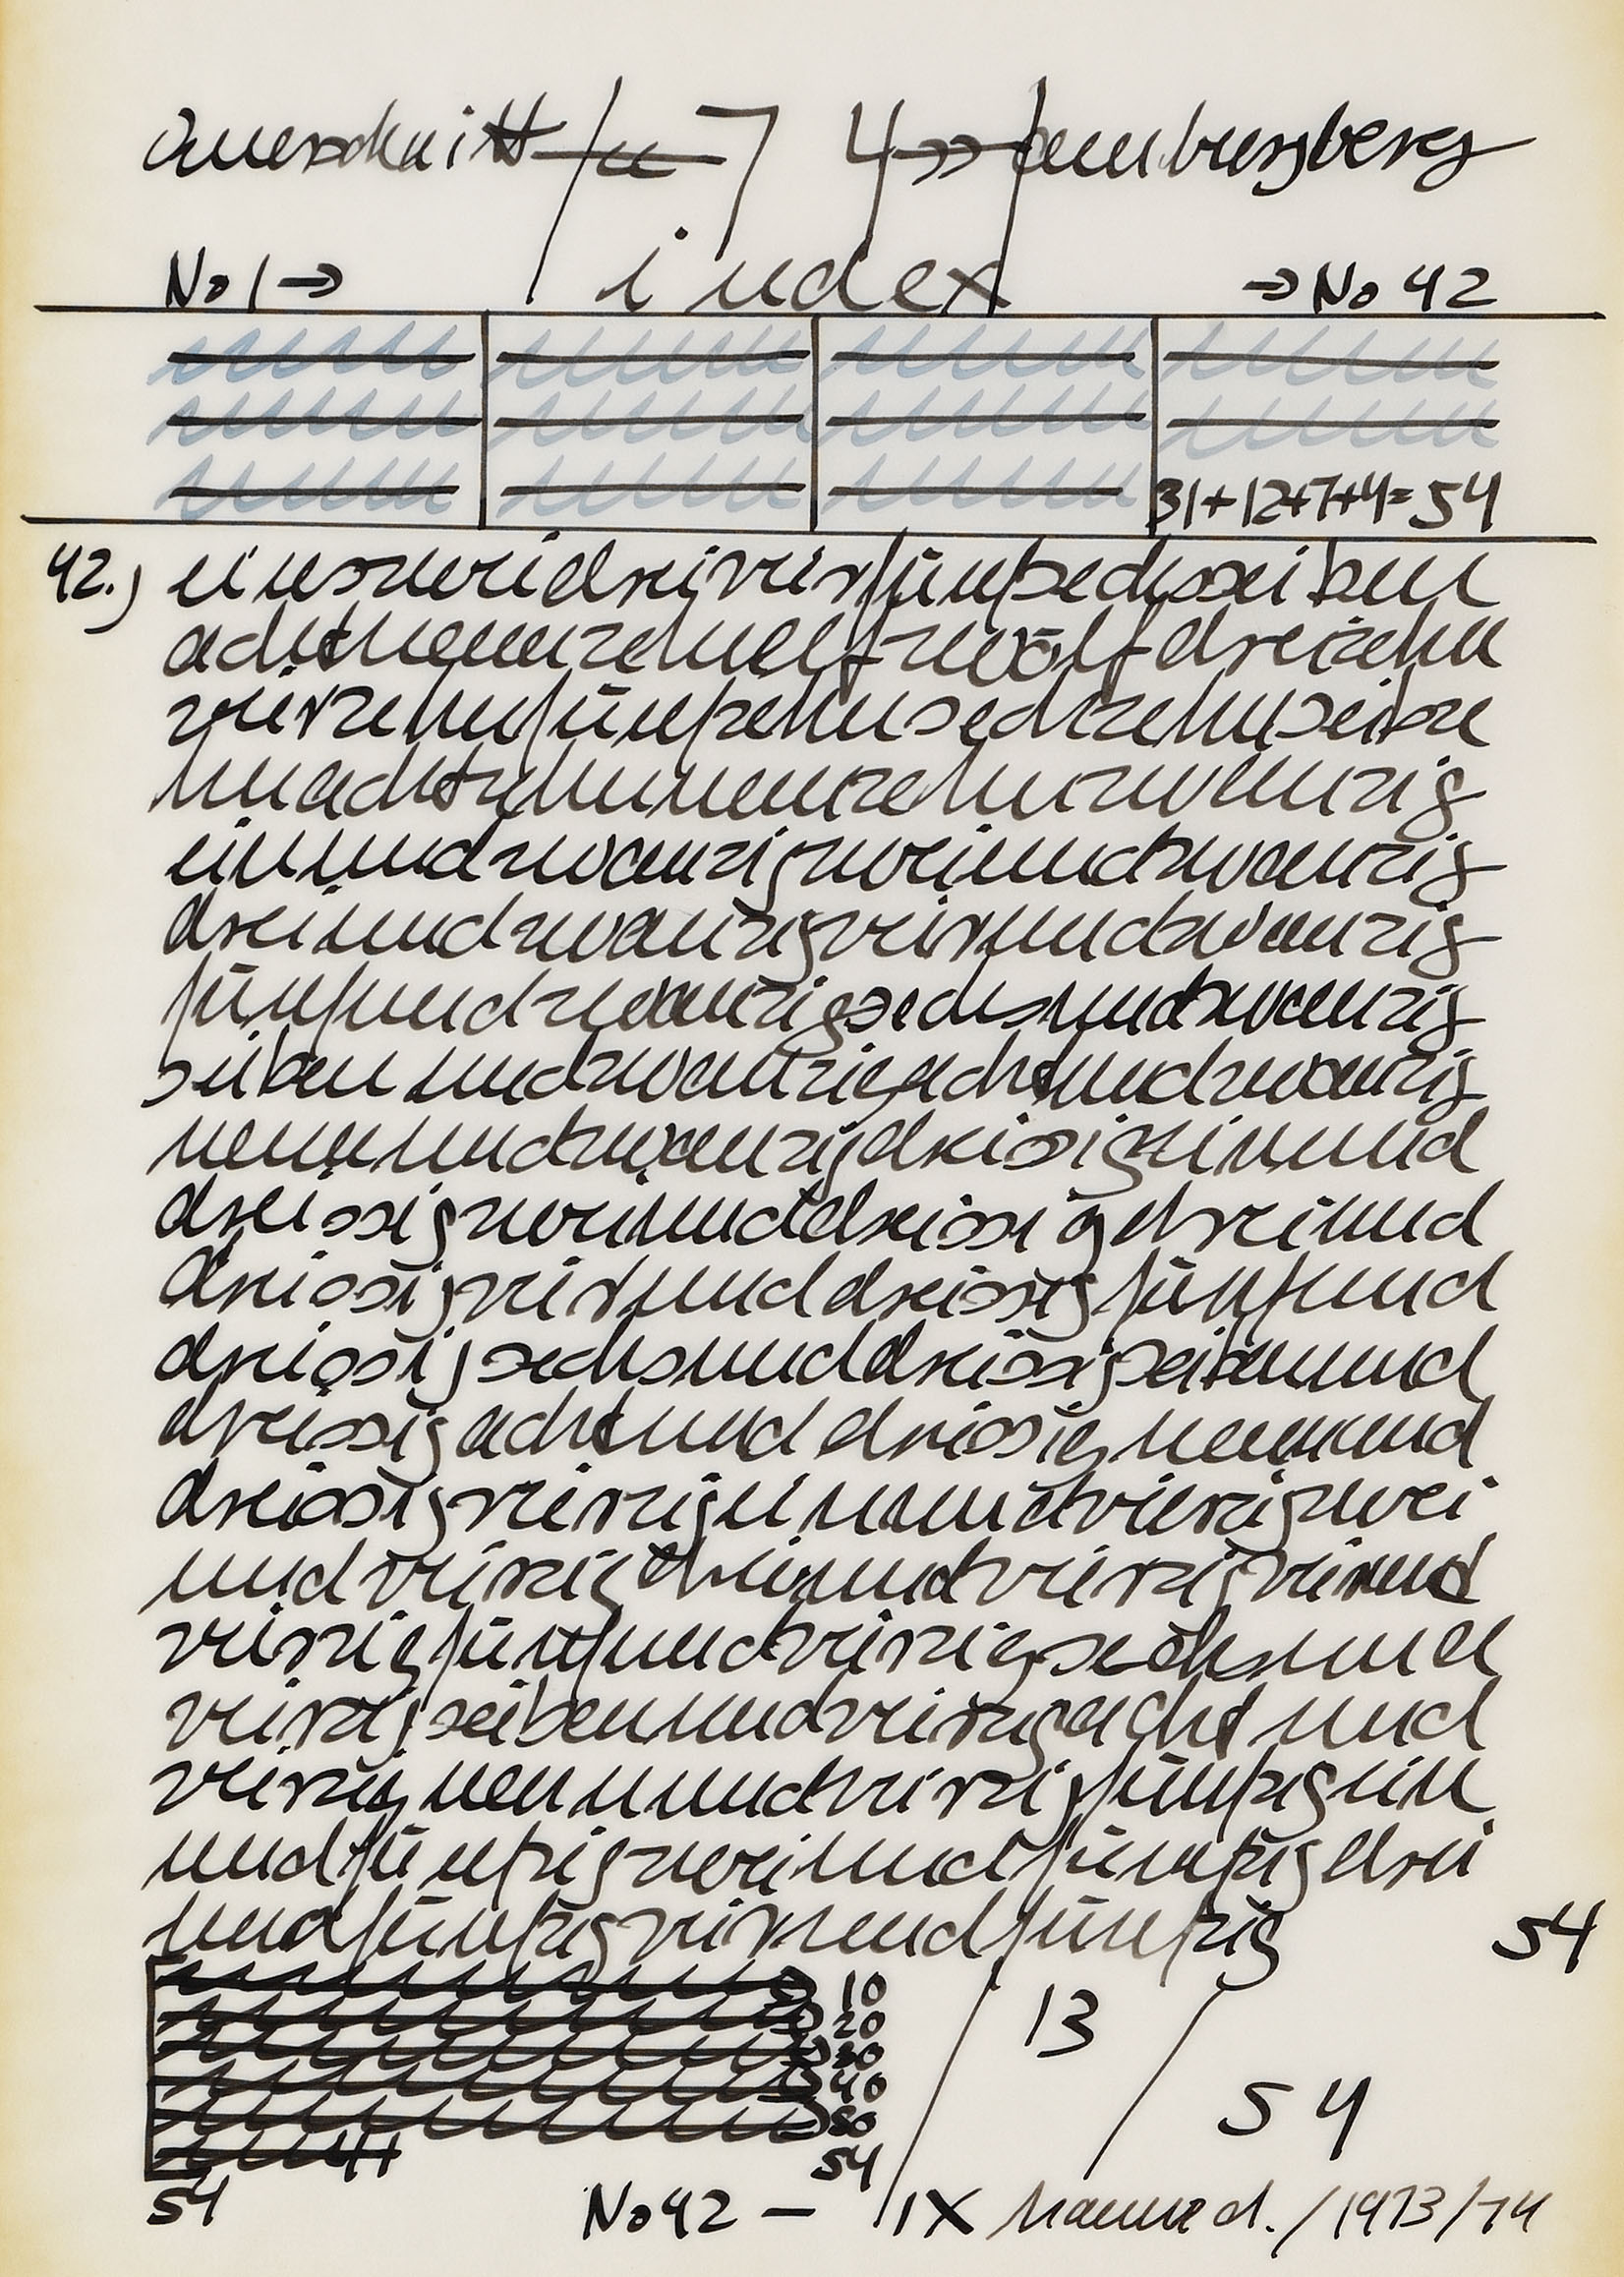 No 1 → index → No 42
31+12+7+4= 54
42.) einszweidreivierfünfsechssieben
achtneunzehnelfzwölfdreizehn
vierzehnfünfzehnsechzehnsiebze
hnachtzehnneunzehnzwanzig
einundzwanzigzweiundzwanzig
dreiundzwanzigvierundzwanzig
fünfundzwanzigsechsundzwanzig
siebenundzwanzigachtundzwanzig
neunundzwanzigdreissigeinund
dreissigzweiunddreissigdreiund
dreissigvierunddreissigfünfund
dreissigsechsunddreissigsiebenund
dreissigachtunddreissigneunund
dreissigvierzigeinundvierzigzwei
undvierzigdreiundvierzigvierund
vierzigfünfundvierzigsechsund
vierzigsiebenundvierzigachtund
vierzigneunundvierzigfünfzigein
undfünfzigzweiundfünfzigdrei
undfünfzigvierundfünfzig 54
10
20
30
40
50
54
54
13
54
No 42 — IX / 1973/74